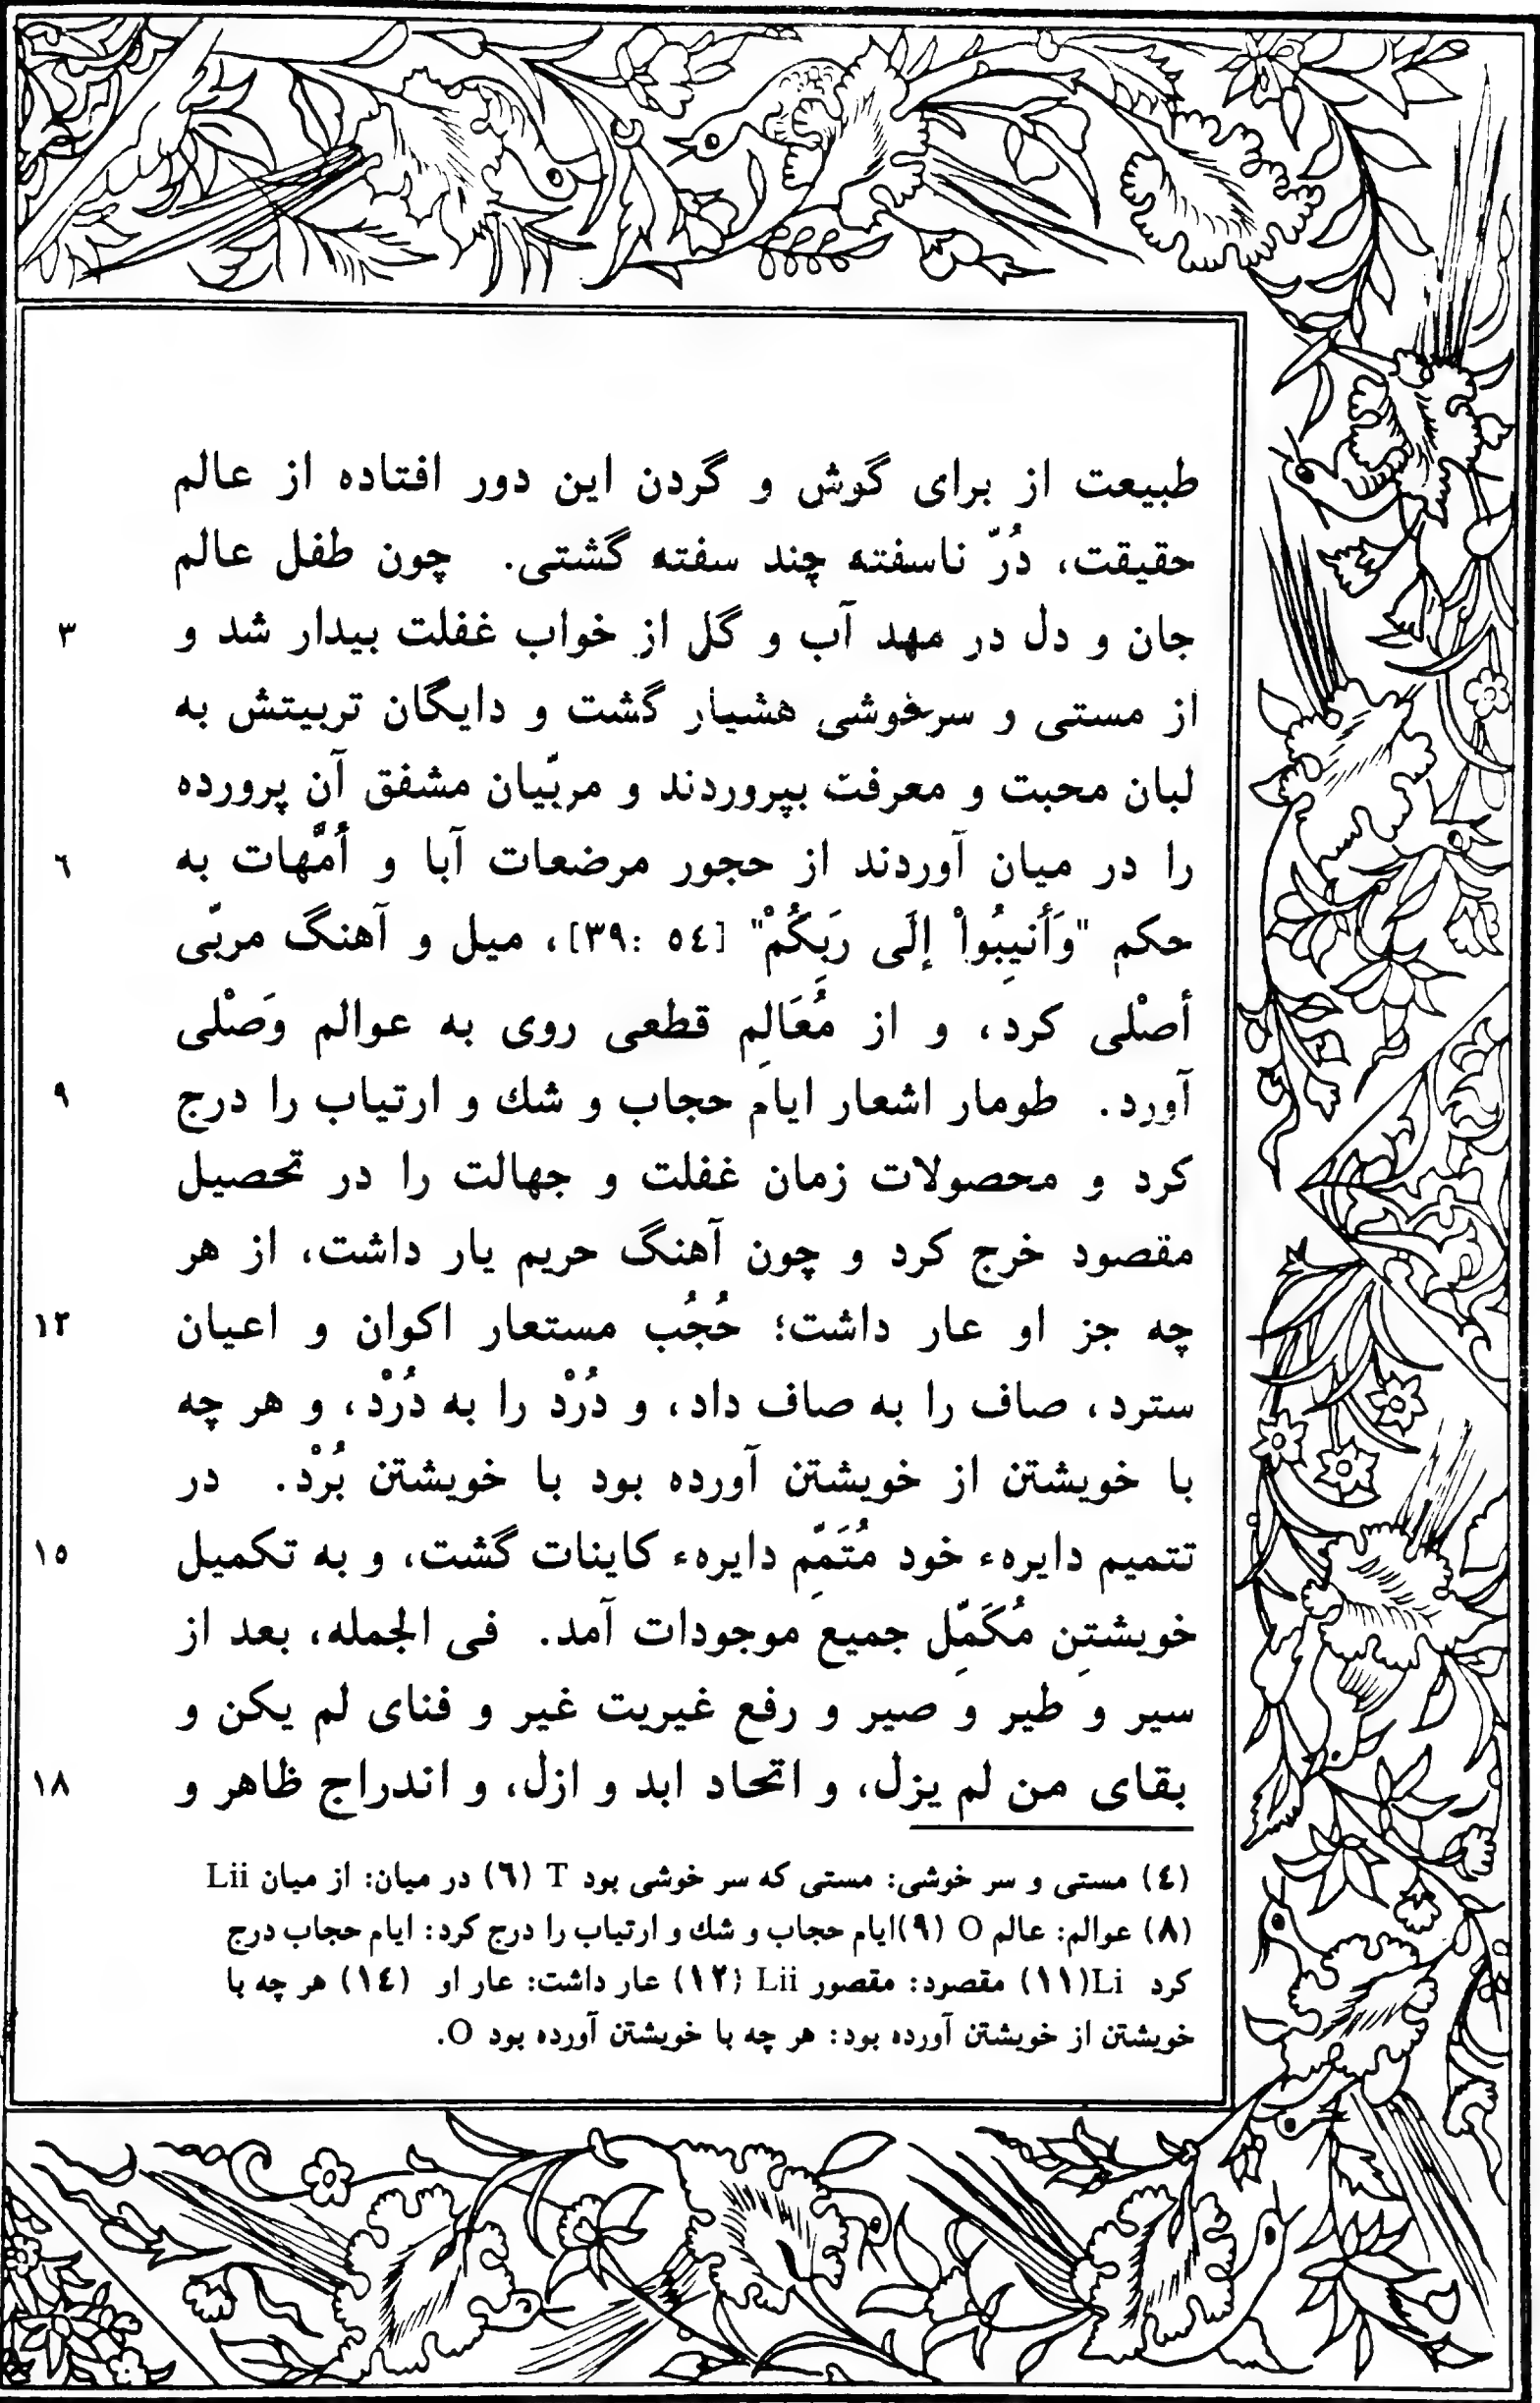 طبیعت از برای گوش و گردن این دور افتاده از عالم
حقیقت، دُرّ ناسفته چند سفته گشتی. چون طفل عالم
٣ جان و دل در مهد آب و گل از خواب غفلت بیدار شد و
از مستی و سرخوشی هشیار گشت و دایگان تربیتش به
لبان محبت و معرفت بپروردند و مربّیان مشفق آن پرورده
٦ را در میان آوردند از حجور مرضعات آبا و أُمَّهات به
حکم "وَأَنیِبُواْ إلَی رَبِکُمْ" [٥٤ :٣٩]، میل و آهنگ مربّی
أصْلی کرد، و از مُعَالِم قطعی روی به عوالم وَصْلی
٩ آورد. طومار اشعار ایام حجاب و شك و ارتیاب را درج
کرد و محصولات زمان غفلت و جهالت را در تحصیل
مقصود خرج کرد و چون آهنگ حریم یار داشت، از هر
١٢ چه جز او عار داشت؛ حُجُب مستعار اکوان و اعیان
سترد، صاف را به صاف داد، و دُرْد را به دُرْد، و هر چه
با خویشتن از خویشتن آورده بود با خویشتن بُرْد. در
١٥ تتمیم دایرهء خود مُتَمِّم دایرهء کاینات گشت، و به تکمیل
خویشتِن مُکَمِّل جمیع موجودات آمد. فی الجمله، بعد از
سیر و طیر و صیر و رفع غیریت غیر و فنای لم یکن و
١٨ بقای من لم یزل، و اتحاد ابد و ازل، و اندراج ظاهر و
(٤) مستی و سر خوشی: مستی که سر خوشی بود T (٦) در میان: از میان Lii
(٨) عوالم: عالم O (٩)ایام حجاب و شك و ارتیاب را درج کرد: ایام حجاب درج
کرد Li(١١) مقصود: مقصور Lii (١٢) عار داشت: عار او (١٤) هر چه با
خویشتن از خویشتن آورده بود: هر چه با خویشتن آورده بود O.